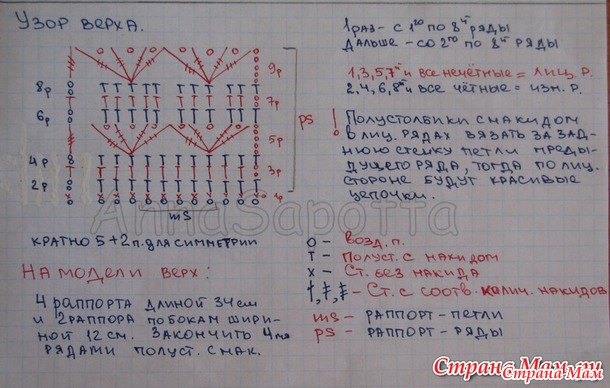 Узор верха.
9р
8р
7р
6р
5р
4р
3р
2р
1р
ps
ms
кратно 5+2п. для симметрии
На модели верх:
4 раппорта длиной 34 см
и 2 раппора по бокам шири-
ной 12 см. Закончить 4мя
рядами полуст. с нак.
1 раз - с 1го по 8й ряды
Дальше - со 2го по 8й ряды
1,3,5,7й и все нечётные = лиц. р.
2,4,6,8й и все чётные = изн. р.
! Полустолбики с накидом
в лиц. рядах вязать за зад-
нюю стенку петли преды-
дущего ряда, тогда по лиц.
стороне будут красивые
цепочки.
о - Возд. п.
т - Полуст. с накидом
х - Ст. без накида
- Ст. с соотв. колич. накидов
ms - раппорт - петли
ps - раппорт - ряды
AnnaSapotta
Страна Мам.ру
Страна Мам